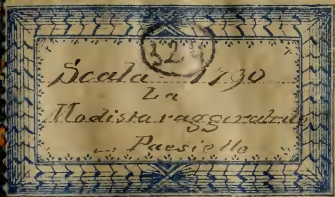 Scala 1790
La
Modista raggiratrice
Paesiello